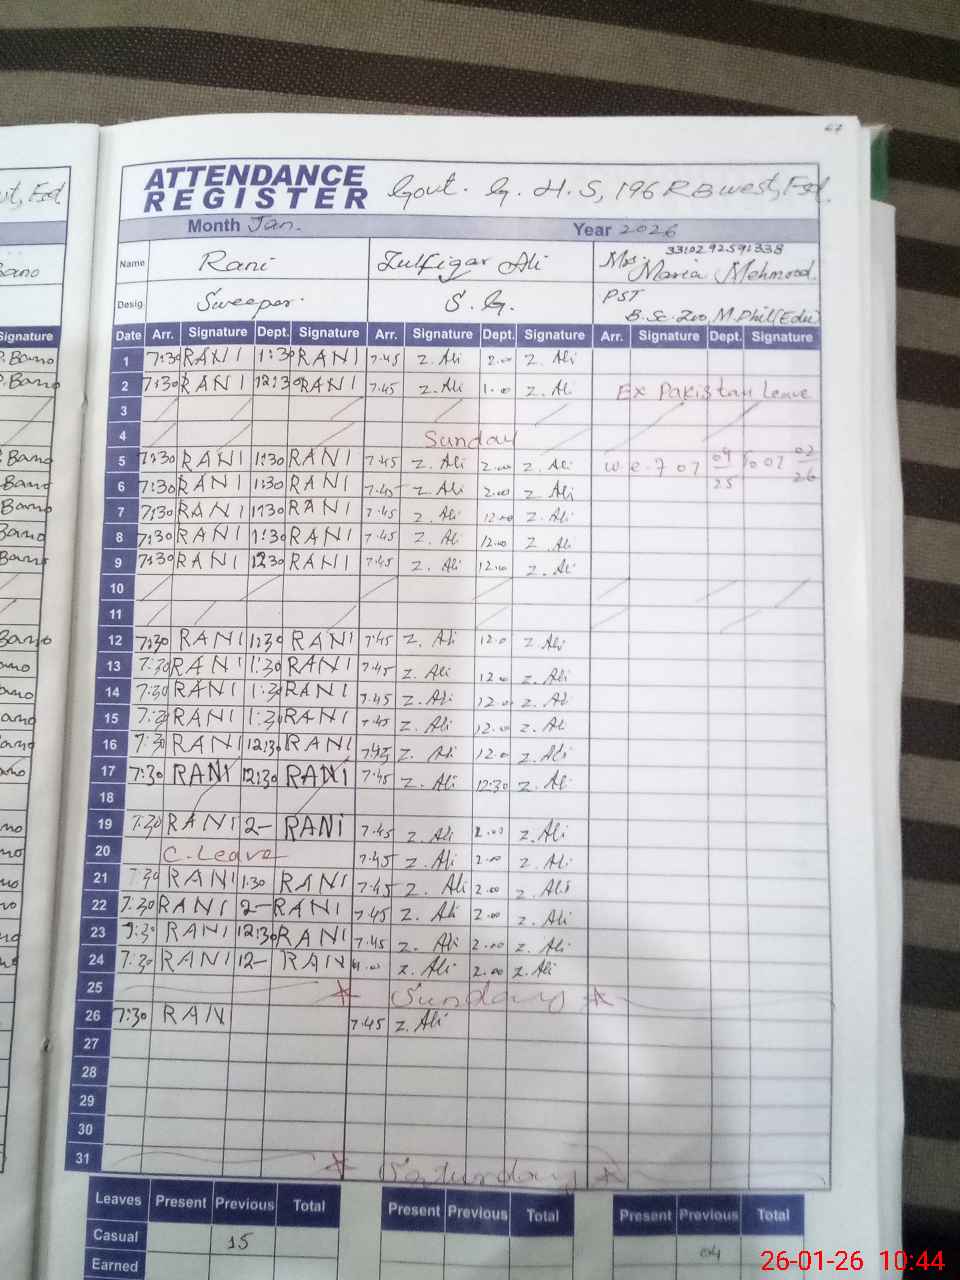 67
ATTENDANCE REGISTER Govt. G. H. S, 196 RB west, Fsd.
Month Jan. Year 2026
3310292591338
Name Rani Zulfiqar Ali Mrs. Maria Mehmood.
Desig. Sweeper. S. G. PST
B.Sc. Zoo, M.Phil(Edu)
Date Arr. Signature Dept. Signature Arr. Signature Dept. Signature Arr. Signature Dept. Signature
1 7:30 RANI 1:30 RANI 7.45 Z. Ali 2.00 Z. Ali
2 7:30 RANI 12:30 RANI 7.45 Z. Ali 1.00 Z. Ali Ex Pakistan Leave
3
4 Sunday
5 7:30 RANI 1:30 RANI 7.45 Z. Ali 2.00 Z. Ali w.e.f 07 09 25 to 07 02 26
6 7:30 RANI 1:30 RANI 7.45 Z. Ali 2.00 Z. Ali
7 7:30 RANI 1:30 RANI 7.45 Z. Ali 12.00 Z. Ali
8 7:30 RANI 1:30 RANI 7.45 Z. Ali 12.00 Z. Ali
9 7:30 RANI 12:30 RANI 7.45 Z. Ali 12.00 Z. Ali
10
11
12 7:30 RANI 1:30 RANI 7.45 Z. Ali 12.0 Z. Ali
13 7:30 RANI 1:30 RANI 7.45 Z. Ali 12.00 Z. Ali
14 7:30 RANI 1:30 RANI 7.45 Z. Ali 12.0 Z. Ali
15 7:30 RANI 1:30 RANI 7.45 Z. Ali 12.00 Z. Ali
16 7:30 RANI 12:30 RANI 7.45 Z. Ali 12.0 Z. Ali
17 7:30 RANI 12:30 RANI 7.45 Z. Ali 12:30 Z. Ali
18
19 7:30 RANI 2- RANI 7.45 Z. Ali 2.00 Z. Ali
20 C. Leave 7.45 Z. Ali 2.00 Z. Ali
21 7:30 RANI 1:30 RANI 7.45 Z. Ali 2.00 Z. Ali
22 7:30 RANI 2- RANI 7.45 Z. Ali 2.00 Z. Ali
23 7:30 RANI 12:30 RANI 7.45 Z. Ali 2.00 Z. Ali
24 7:30 RANI 12- RAN Z. Ali 2.00 Z. Ali
25 Sunday
26 7:30 RAN 7.45 Z. Ali
27
28
29
30
31
Leaves Present Previous Total Present Previous Total Present Previous Total
Casual 15 04
Earned
26-01-26 10:44